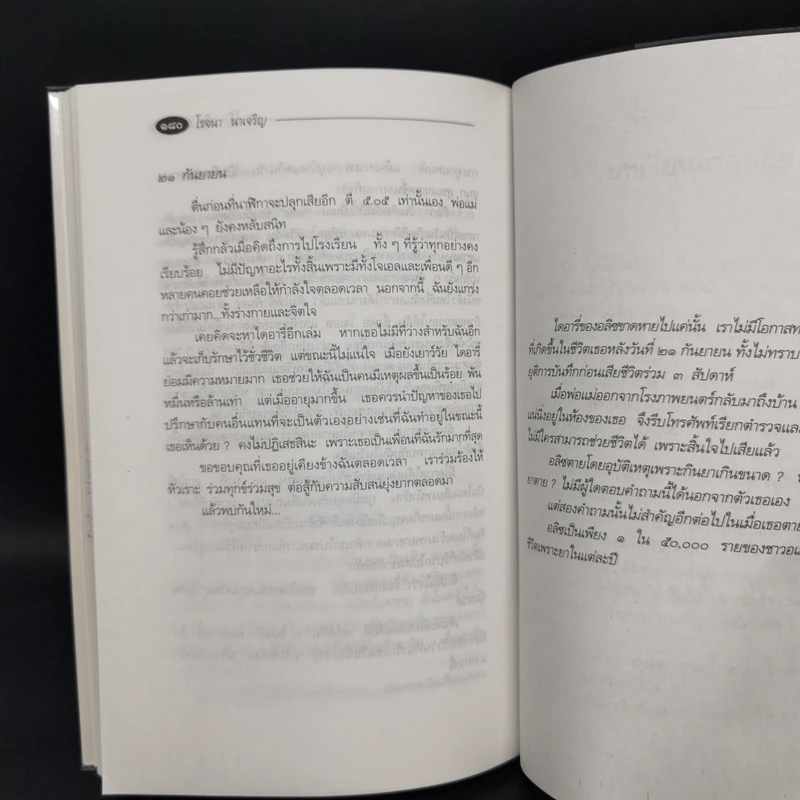 ๑๘๐ โรจนา นาเจริญ
๒๑ กันยายน
ตื่นก่อนที่นาฬิกาจะปลุกเสียอีก ตี ๕.๐๕ เท่านั้นเอง พ่อแม่
และน้อง ๆ ยังคงหลับสนิท
รู้สึกกลัวเมื่อคิดถึงการไปโรงเรียน ทั้ง ๆ ที่รู้ว่าทุกอย่างคง
เรียบร้อย ไม่มีปัญหาอะไรทั้งสิ้นเพราะมีทั้งโจเอลและเพื่อนดี ๆ อีก
หลายคนคอยช่วยเหลือให้กำลังใจตลอดเวลา นอกจากนี้ ฉันยังแกร่ง
กว่าเก่ามาก...ทั้งร่างกายและจิตใจ
เคยคิดจะหาไดอารี่อีกเล่ม หากเธอไม่มีที่ว่างสำหรับฉันอีก
แล้วจะเก็บรักษาไว้ชั่วชีวิต แต่ขณะนี้ไม่แน่ใจ เมื่อยังเยาว์วัย ไดอารี่
ย่อมมีความหมายมาก เธอช่วยให้ฉันเป็นคนมีเหตุผลขึ้นเป็นร้อย พัน
หมื่นหรือล้านเท่า แต่เมื่ออายุมากขึ้น เธอควรนำปัญหาของเธอไป
ปรึกษากับคนอื่นแทนที่จะเป็นตัวเองอย่างเช่นที่ฉันทำอยู่ในขณะนี้
เธอเห็นด้วย ? คงไม่ปฏิเสธสินะ เพราะเธอเป็นเพื่อนที่ฉันรักมากที่สุด
ขอขอบคุณที่เธออยู่เคียงข้างฉันตลอดเวลา เราร่วมร้องไห้
หัวเราะ ร่วมทุกข์ร่วมสุข ต่อสู้กับความสับสนยุ่งยากตลอดมา
แล้วพบกันใหม่...
ไดอารี่ของอลิซขาดหายไปแค่นั้น เราไม่มีโอกาสท
ที่เกิดขึ้นในชีวิตเธอหลังวันที่ ๒๑ กันยายน ทั้งไม่ทราบ
ยุติการบันทึกก่อนเสียชีวิตร่วม ๓ สัปดาห์
เมื่อพ่อแม่ออกจากโรงภาพยนตร์กลับมาถึงบ้าน
แน่นิ่งอยู่ในห้องของเธอ จึงรีบโทรศัพท์เรียกตำรวจแล
ไม่มีใครสามารถช่วยชีวิตได้ เพราะสิ้นใจไปเสียแล้ว
อลิซตายโดยอุบัติเหตุเพราะกินยาเกินขนาด ?
ยาตาย ? ไม่มีผู้ใดตอบคำถามนี้ได้นอกจากตัวเธอเอง
แต่สองคำถามนั้นไม่สำคัญอีกต่อไปในเมื่อเธอตาย
อลิซเป็นเพียง ๑ ใน ๕๐,๐๐๐ รายของชาวอเม
ชีวิตเพราะยาในแต่ละปี